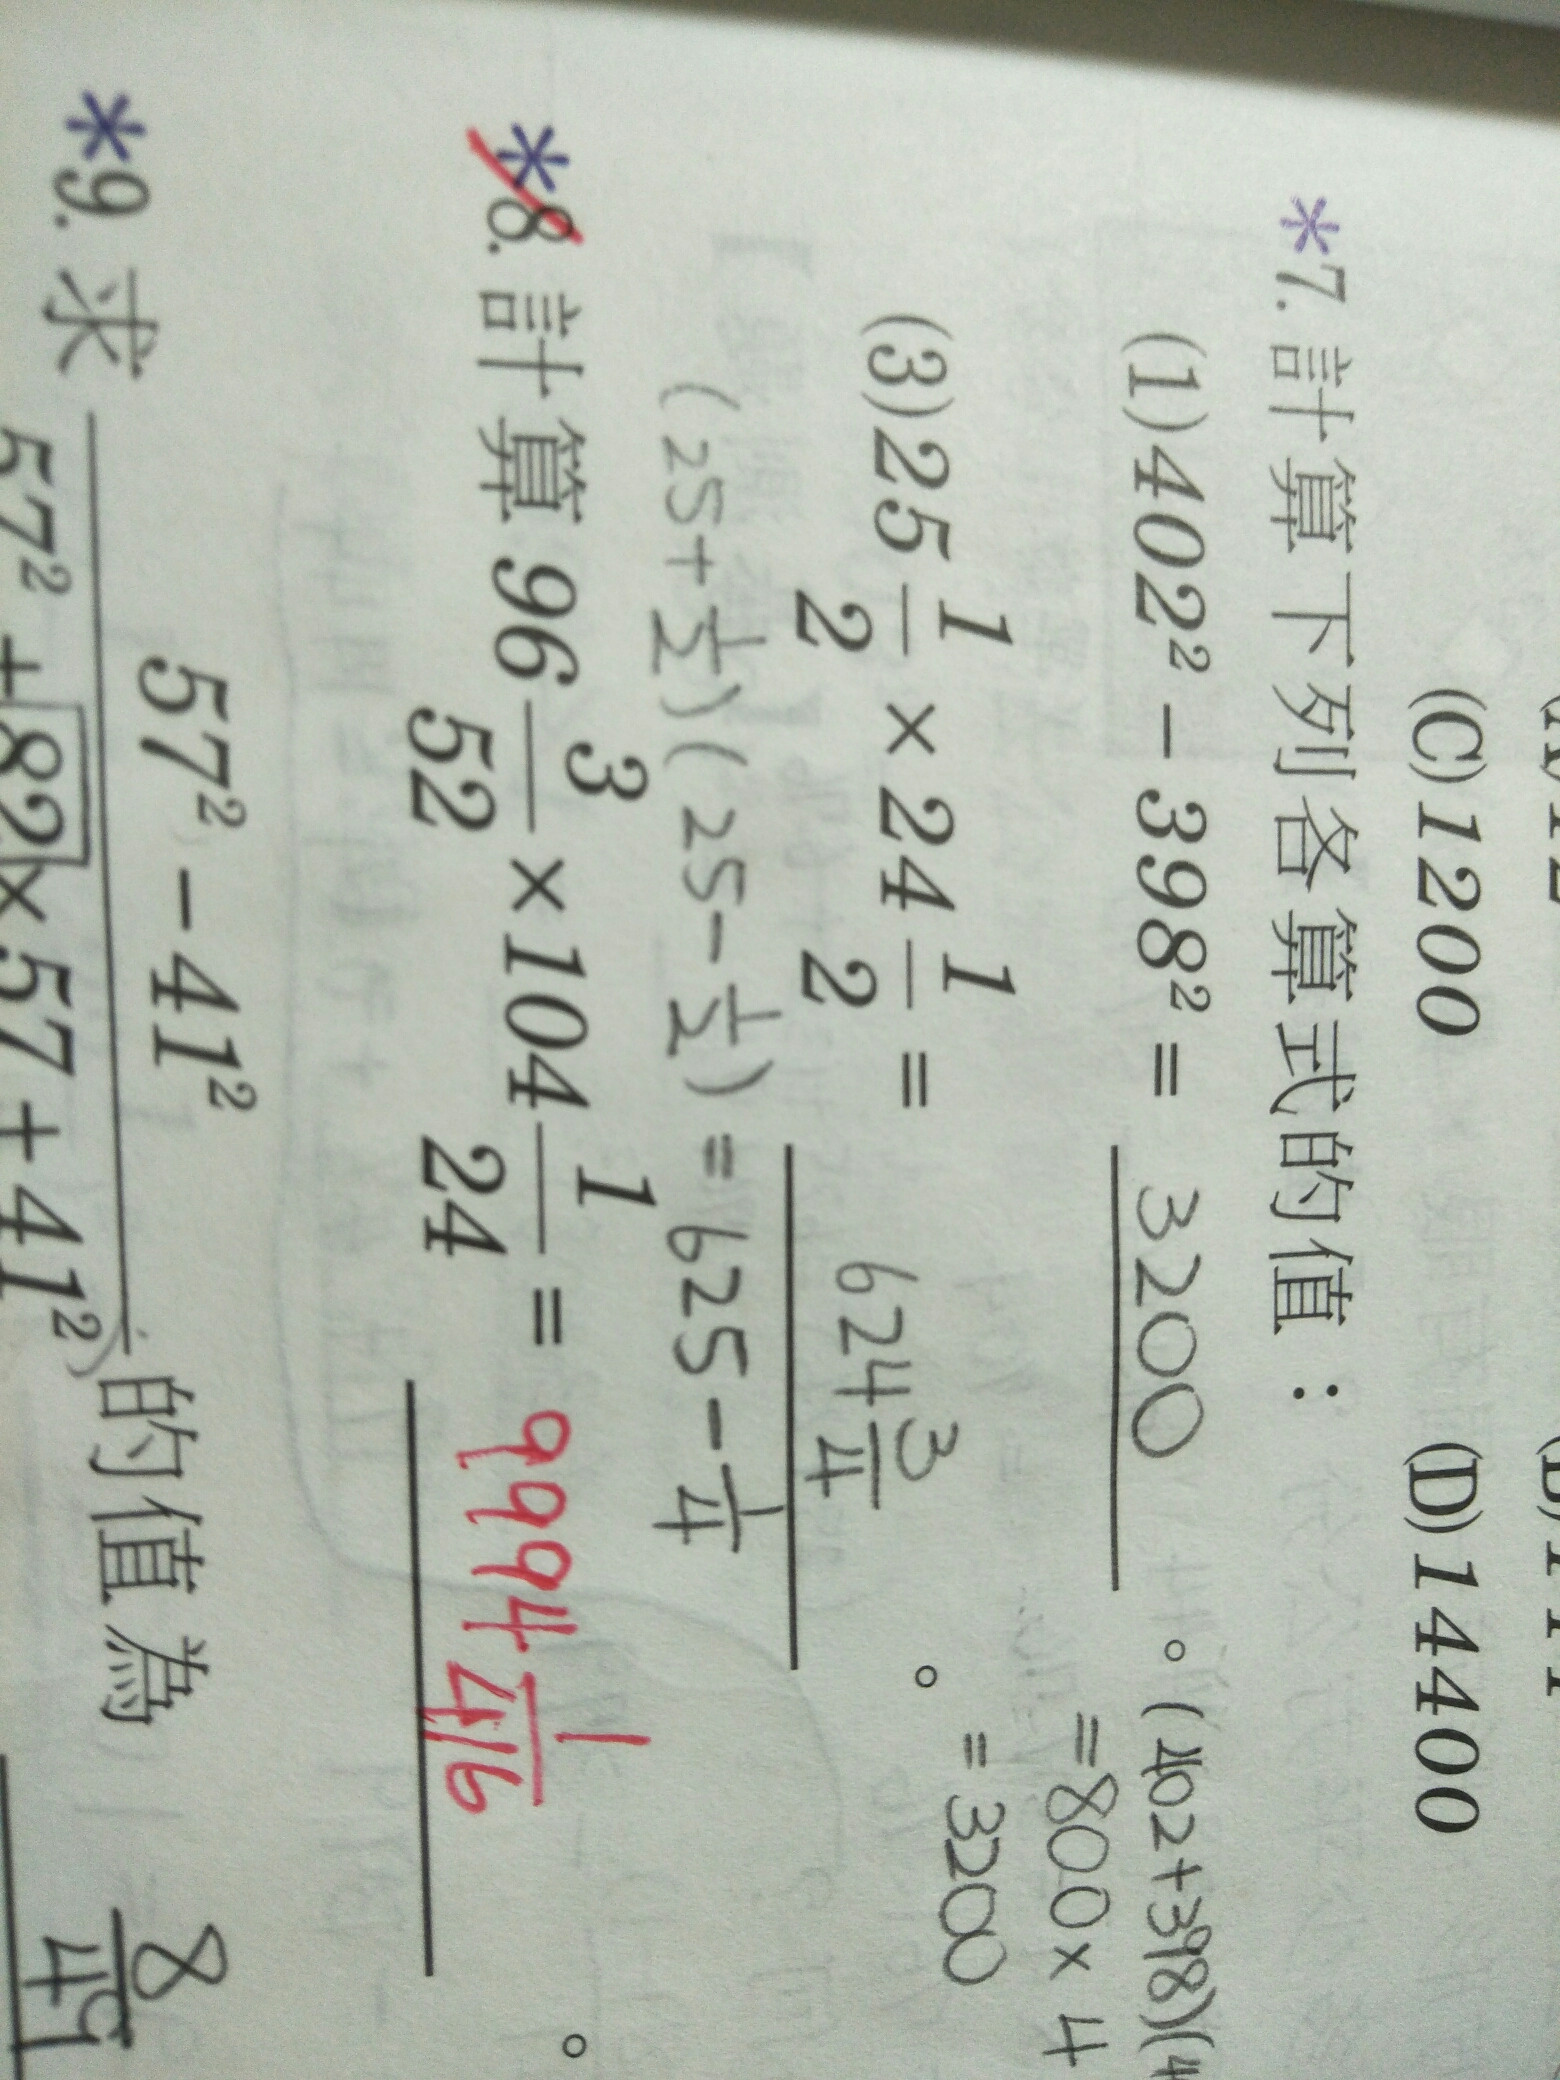 (C)1200 (D)14400
*7.計算下列各算式的值：
(1)402²－398²＝ 3200 。(402+398)(4
=800×4
=3200
(3)25 1/2 × 24 1/2 ＝ 624 3/4 。
(25+1/2)(25-1/2)=625-1/4
*8.計算 96 3/52 ×104 1/24 ＝ 9994 1/416 。
*9.求 57²－41² / 57²＋82×57＋41² 的值為 8/49